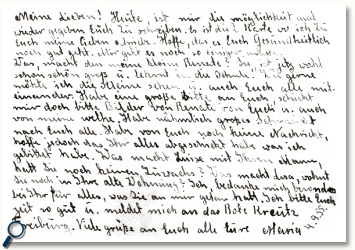 Meine Lieben! Heute, ist mir die Möglichkeit mal
wieder gegeben Euch zu schreiben. Es ist d. Karte wo ich zu
Euch meine Lieben schreibe. Hoffe, das es Euch Gesundheitlich
noch gut geht. Mir geht es noch so einiger
Was, macht den meine kleine Renate? Sie ist jetz wohl
schon schön groß u. lehrnt in die Schule? Wie gerne
möchte ich die Kleine sehen, auch Euch alle mit-
einander. Habe eine große bitte an Euch, schickt
mir doch bitte Bilder von Renate von Euch u. auch
von meine Habe nähmlich großes
nach Euch all. Habe von Euch noch keine Nachricht,
hoffe jedoch das Ihr alles abgeschickt habt was ich
gebittet habe. Was macht Luise mit Ihren Mann,
hatt Sie noch keinen Zuwachs? Was macht wohnt
Sie noch in Ihre alte Wohnung? Ich, bedanke mich besonders
bei Ihr für alles, was Sie an mir getan hatt. Ich bitte Euch
seit so gut u. meldet mich an das Rote Kreutz
Viele grüße an Euch alle Eure Maria